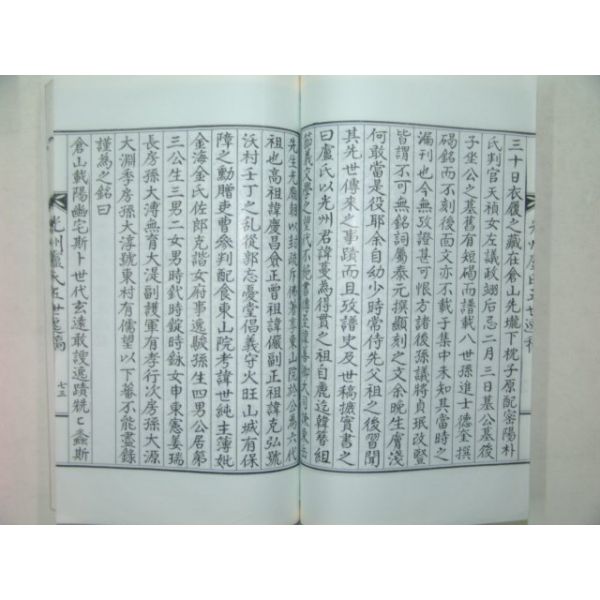 三十日衣履之藏在倉山先壠下枕子原配密陽朴
氏判官天禎女左議政翊后忌二月三日基公基後
子坐公之墓舊有短碣而譜載八世孫進士德奎撰
碣銘而不刻後面文亦不載子集中未知其當時之
漏刊也今無攷證甚可恨方諸後孫議將貞珉改竪
皆謂不可無銘詞屬泰元撰顯刻之文余晩生膚淺
何敢當是役耶余自幼少時常侍先父祖之後習聞
其先世傳來之事蹟而且攷譜史及世稿摭實書之
曰盧氏以光州君諱蔓為得貫之祖自鹿迄韓簪組
節義文學之
先生 六代
祖也高祖諱慶昌僉正曾祖諱儼副正祖諱克弘號
沃村壬丁之亂從郭忘憂堂倡義守火旺山城有保
障之勳贈吏曹參判配食東山院考諱世純主簿妣
金海金氏佐郎克諧女府事逸驗孫生四男公居第
三公生三男二女男時釴時錠時銾女申東憲姜瑞
長房孫大溥無育大湜副護軍有孝行次房孫大源
大淵季房孫大淳號東村有儒望以下蕃不能盡錄
謹為之銘曰
倉山戴陽幽宅斯卜世代玄遠敢謏遺蹟兟兟螽斯
光州盧氏五世逸稿
七三